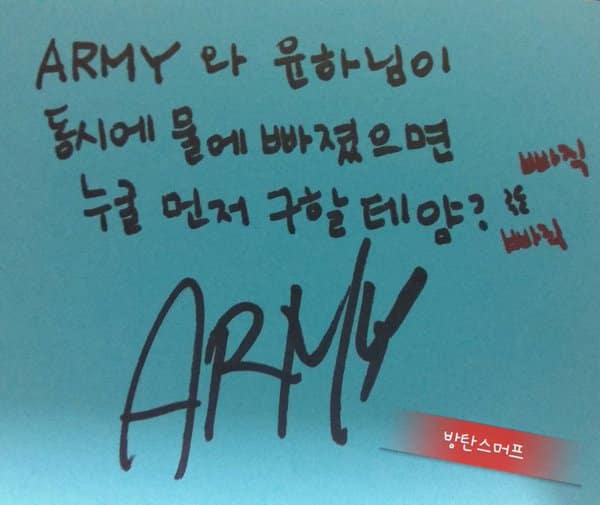 ARMY 와 윤하님이
동시에 물에 빠졌으면
누굴 먼저 구할 테얌?
빠직
빠직
ARMY
방탄스머프